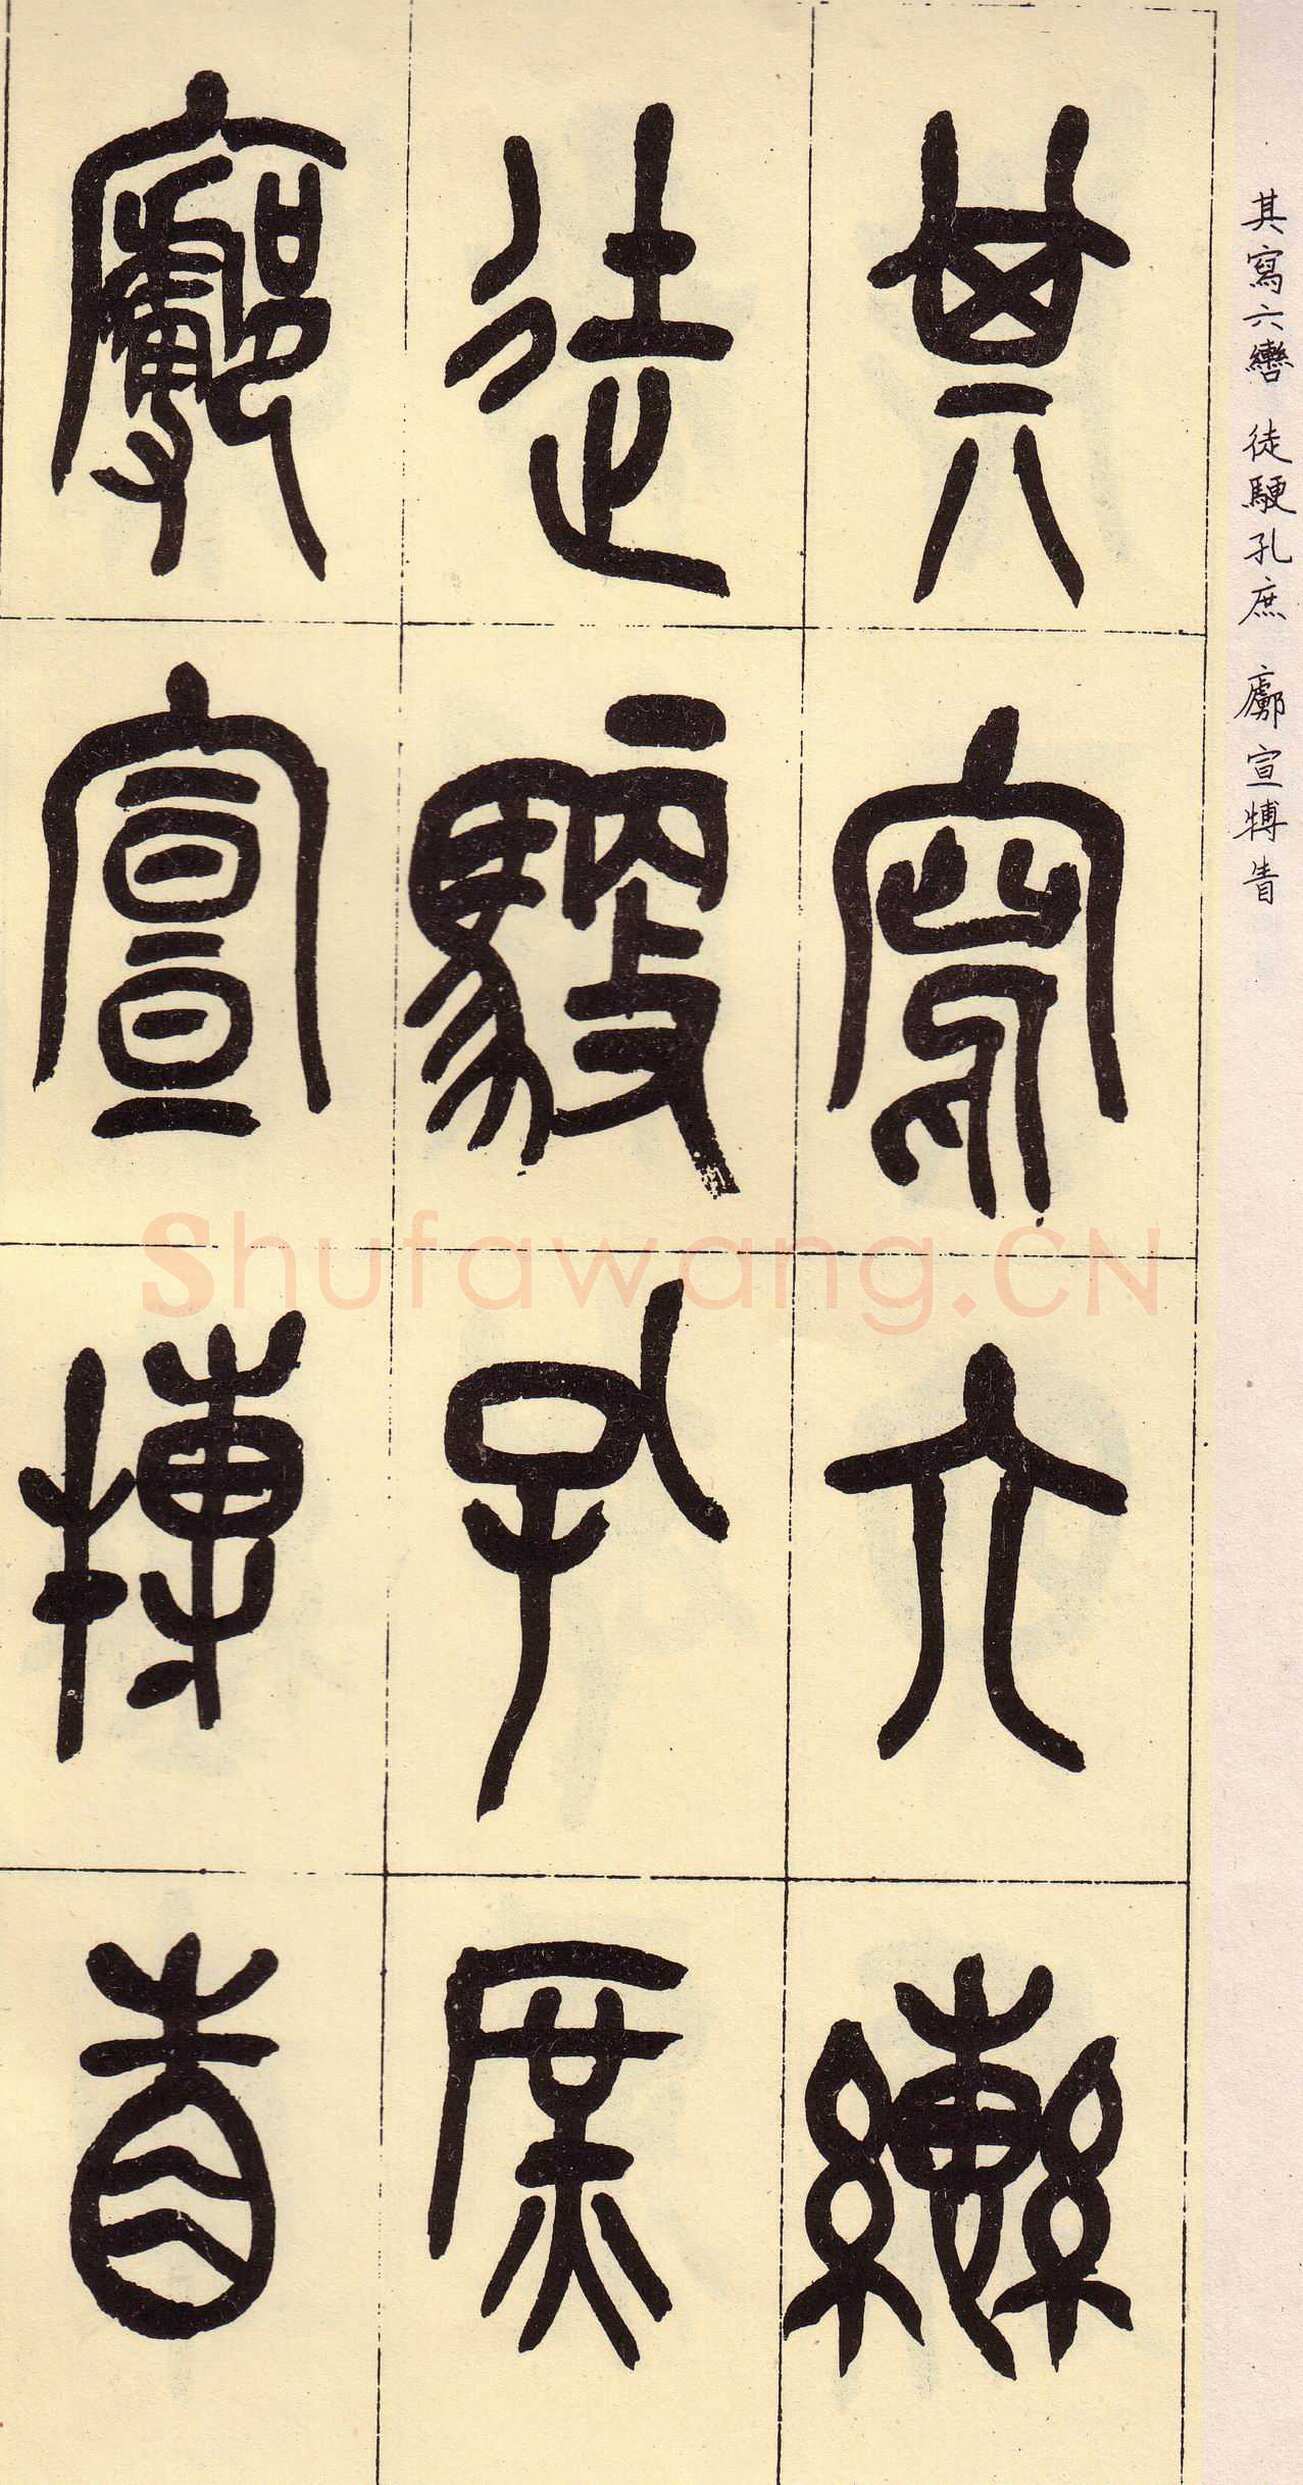 其寫六轡 徒驂孔庶 廓宣搏眚
其寫六轡
徒驂孔庶
廓宣搏眚
Shufawang.CN